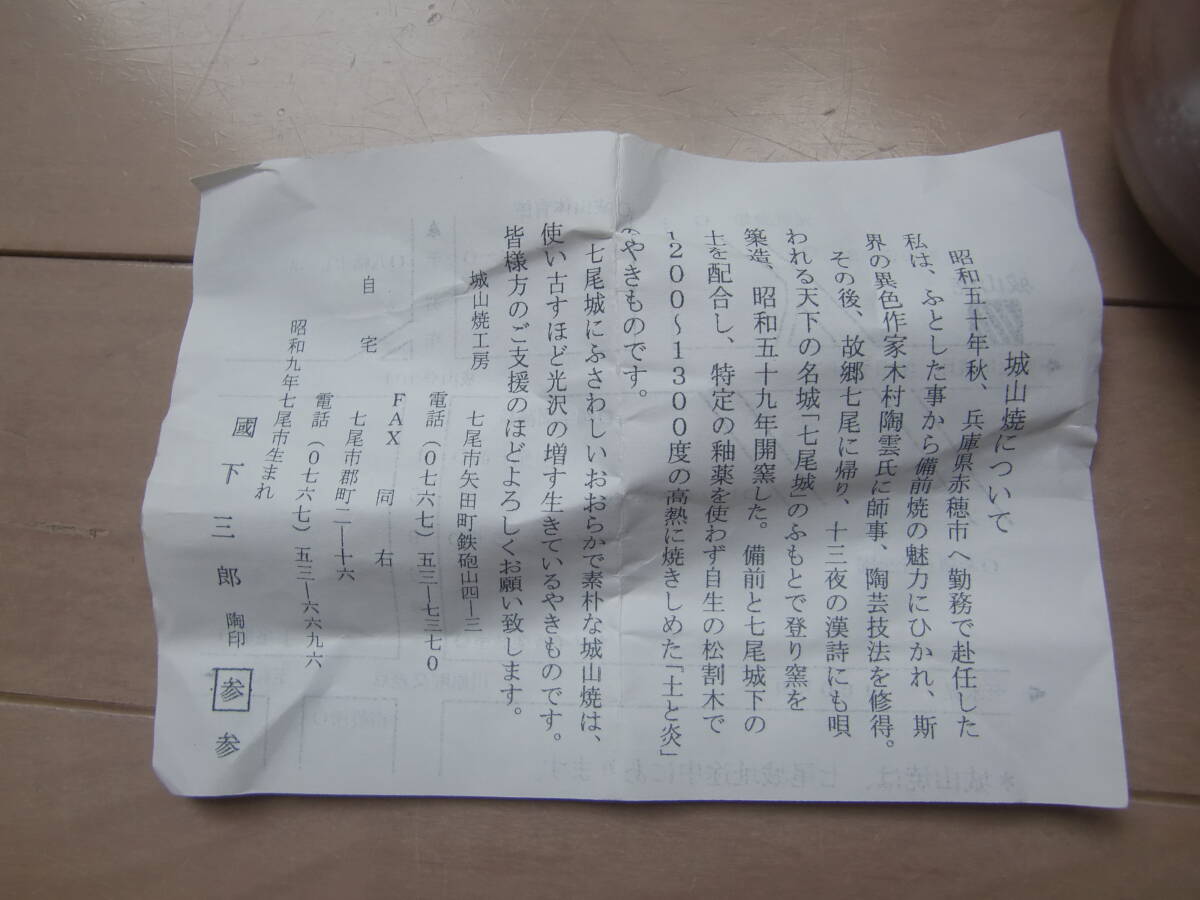 城山焼について
昭和五十年秋、兵庫県赤穂市へ勤務で赴任した
私は、ふとした事から備前焼の魅力にひかれ、斯
界の異色作家木村陶雲氏に師事、陶芸技法を修得。
その後、故郷七尾に帰り、十三夜の漢詩にも唄
われる天下の名城「七尾城」のふもとで登り窯を
築造、昭和五十九年開窯した。備前と七尾城下の
土を配合し、特定の釉薬を使わず自生の松割木で
1200〜1300度の高熱に焼きしめた「土と炎」
のやきものです。
七尾城にふさわしいおおらかで素朴な城山焼は、
使い古すほど光沢の増す生きているやきものです。
皆様方のご支援のほどよろしくお願い致します。
城山焼工房 七尾市矢田町鉄砲山四―三
電話(〇七六七)五三―七三七〇
FAX 同右
自宅 七尾市郡町二―十六
電話(〇七六七)五三―六六九六
昭和九年七尾市生まれ
國下三郎 陶印 参 参
＊城山焼は、七尾城址途中にあります。